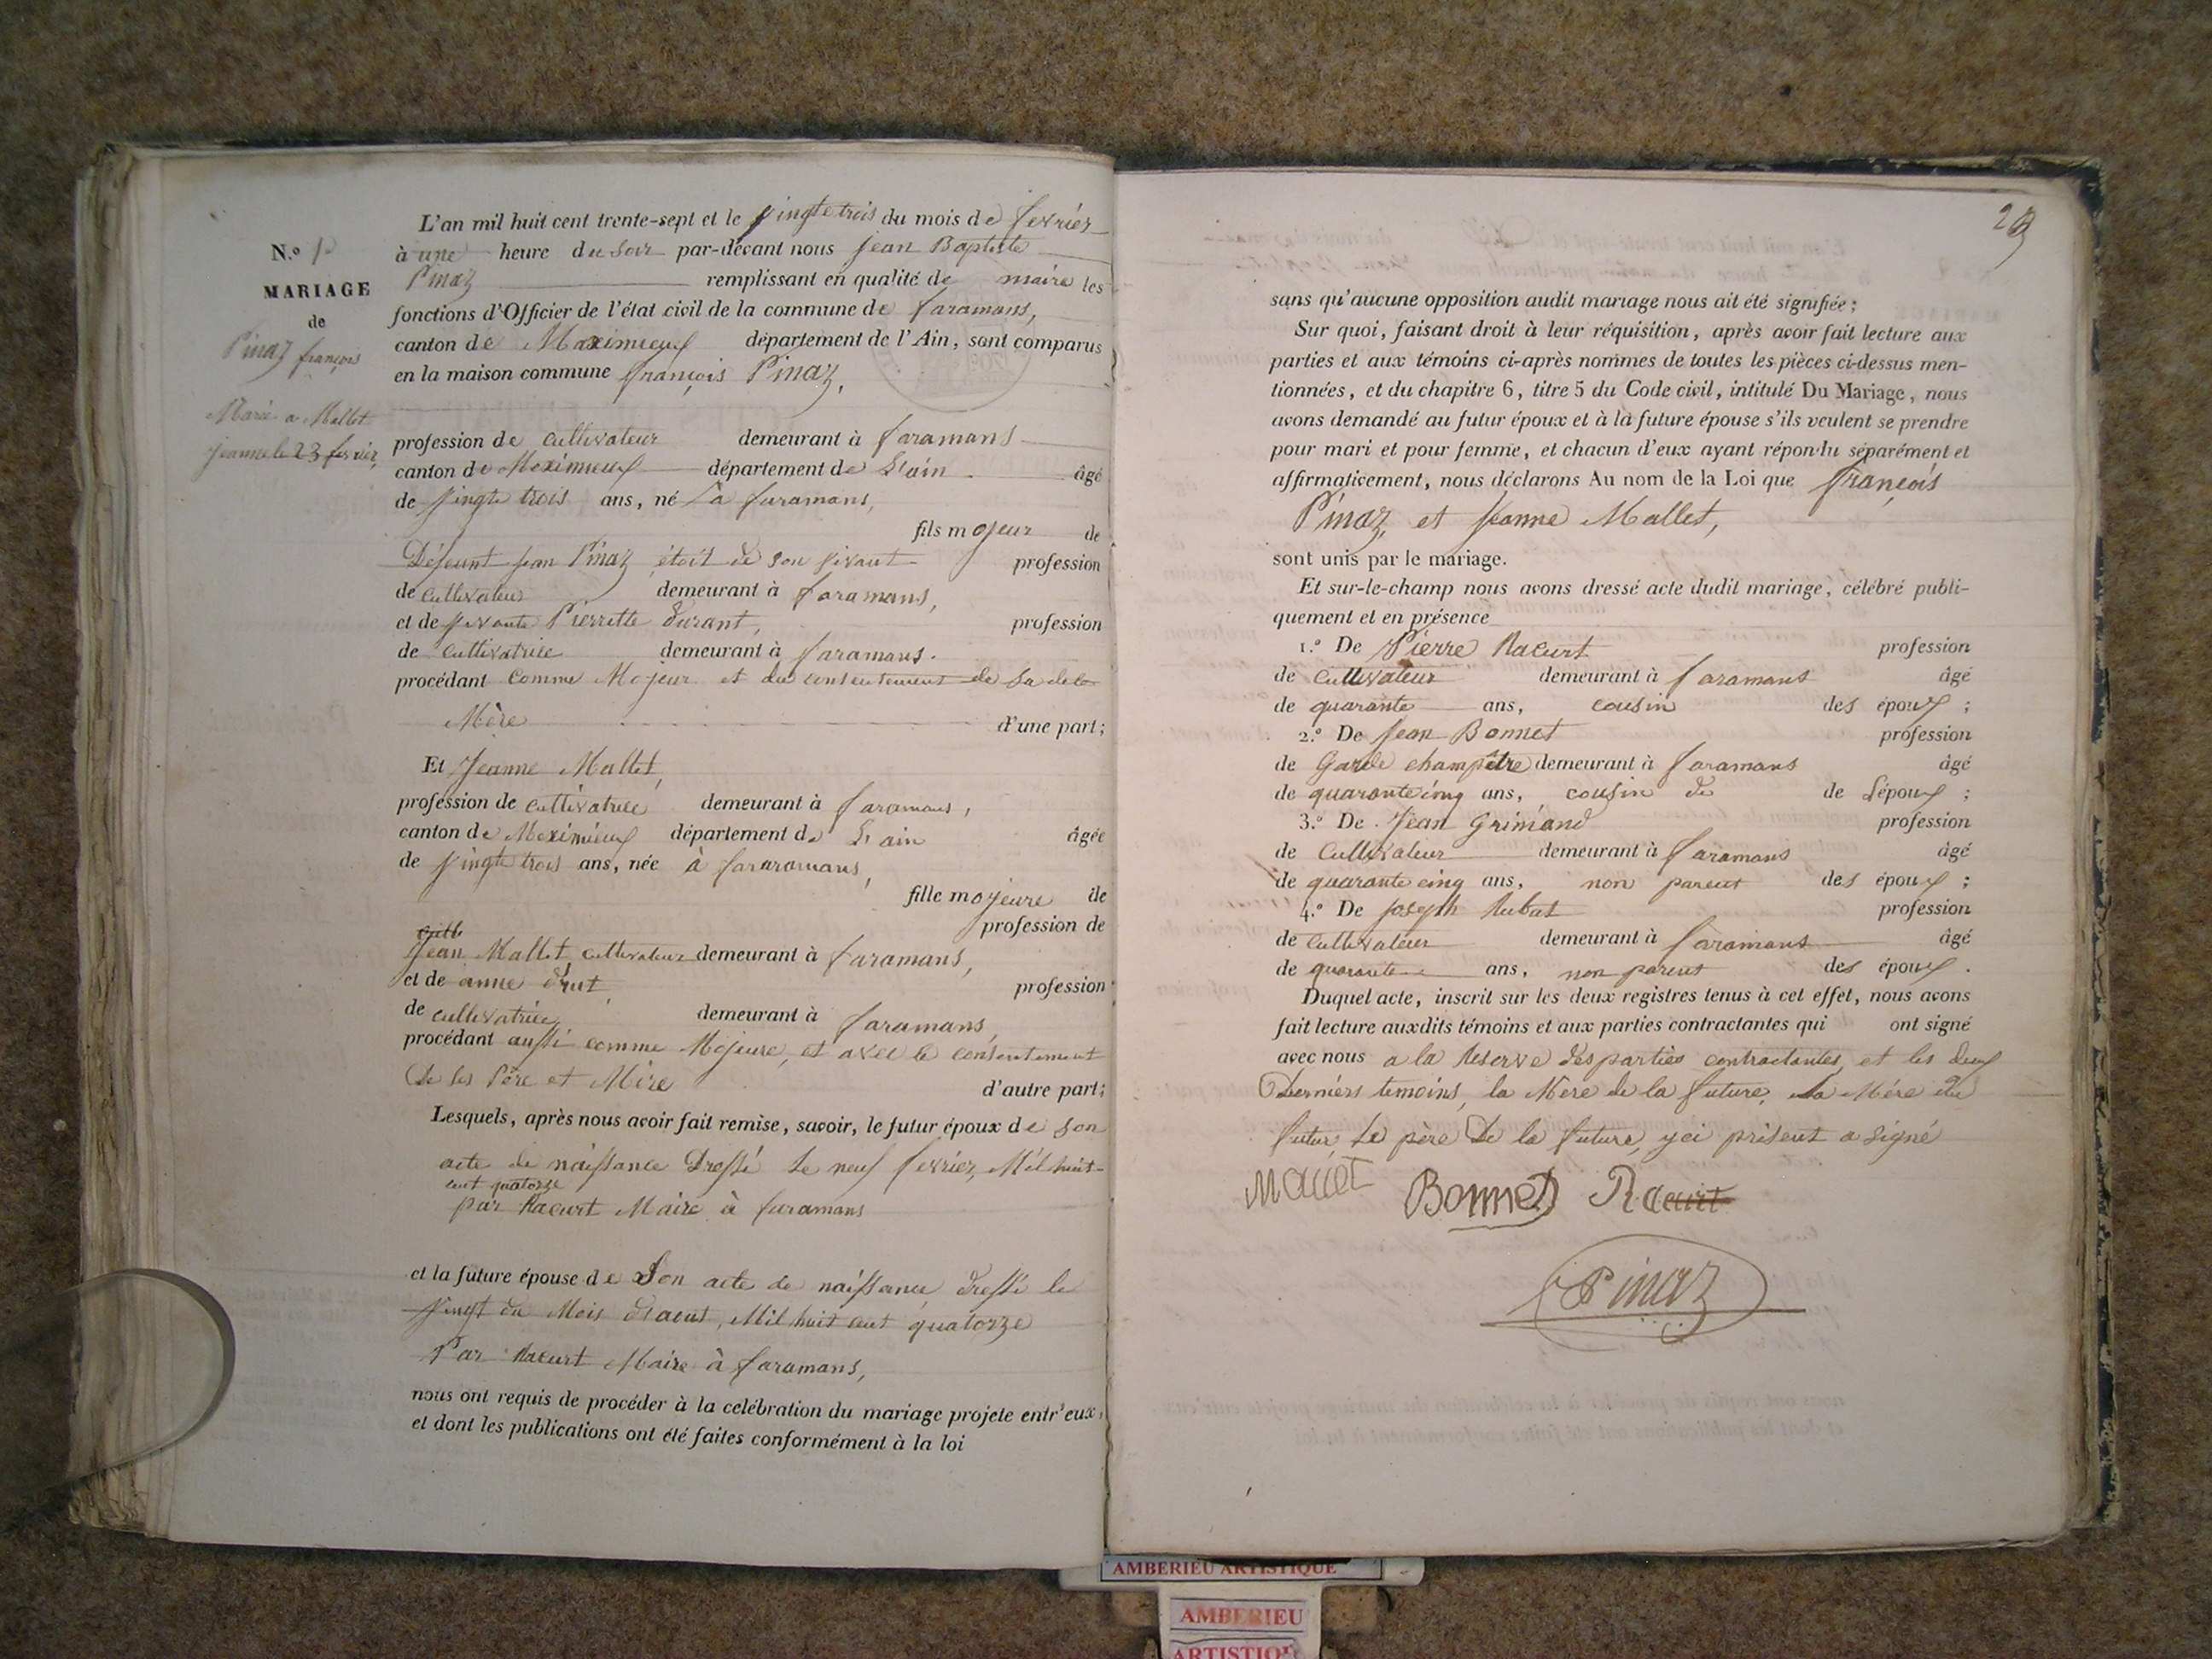 N.o 1
MARIAGE
de
Pinaz françois
Marié a Mallet
Jeanne le 23 fevrier
L'an mil huit cent trente-sept et le vingt trois du mois de fevrier
à une heure du Soir par-devant nous jean Baptiste
Pinaz remplissant en qualité de maire les
fonctions d'Officier de l'état civil de la commune de faramans,
canton de Meximieux département de l'Ain, sont comparus
en la maison commune françois Pinaz,
profession de cultivateur demeurant à faramans
canton de Meximieux département de L'ain âgé
de vingt trois ans, né à faramans,
fils majeur de
Défeunt jean Pinaz étoit de son vivant profession
de cultivateur demeurant à faramans,
et de vivante Pierrette durant, profession
de cultivatrice demeurant à faramans.
procédant comme Majeur et du consentement de sa dete
Mère d'une part;
Et Jeanne Mallet,
profession de cultivatrice demeurant à faramans,
canton de Meximieux département de L'ain âgée
de vingt trois ans, née à fararamans,
fille majeure de
profession de
Jean Mallet, cultivateur demeurant à faramans,
et de anne drut profession
de cultivatrice demeurant à faramans,
procédant aussi comme Majeure, et avec le consentement
De ses Père et Mère d'autre part;
Lesquels, après nous avoir fait remise, savoir, le futur époux de son
acte de naissance Dressé le neuf fevrier, Mil huit-
cent quatorze
par Racurt Maire à faramans
et la future épouse de Son acte de naissance dressé le
vingt du Mois d'aout, Mil huit cent quatorze
Par Racurt Maire à faramans,
nous ont requis de procéder à la célébration du mariage projeté entr'eux,
et dont les publications ont été faites conformément à la loi
sans qu'aucune opposition audit mariage nous ait été signifiée;
Sur quoi, faisant droit à leur réquisition, après avoir fait lecture aux
parties et aux témoins ci-après nommes de toutes les pièces ci-dessus men-
tionnées, et du chapitre 6, titre 5 du Code civil, intitulé Du Mariage, nous
avons demandé au futur époux et à la future épouse s'ils veulent se prendre
pour mari et pour femme, et chacun d'eux ayant répondu séparément et
affirmativement, nous déclarons Au nom de la Loi que françois
Pinaz, et Jeanne Mallet,
sont unis par le mariage.
Et sur-le-champ nous avons dressé acte dudit mariage, célébré publi-
quement et en présence
1.o De Pierre Racurt profession
de cultivateur demeurant à faramans âgé
de quarante ans, cousin des époux;
2.o De Jean Bonnet profession
de Garde champêtre demeurant à faramans âgé
de quarante cinq ans, cousin de de L'époux;
3.o De Jean Grimand profession
de Cultivateur demeurant à faramans âgé
de quarante cinq ans, non parent des époux;
4.o De Joseph Rubat profession
de Cultivateur demeurant à faramans âgé
de quarante ans, non parent des époux.
Duquel acte, inscrit sur les deux registres tenus à cet effet, nous avons
fait lecture auxdits témoins et aux parties contractantes qui ont signé
avec nous a la Reserve des parties contractantes, et les deux
Derniers temoins, la Mère de la future, La Mère du
futur, Le père De la future, yci présent a signé
Mallet Bonnet Racurt
Pinaz
AMBERIEU ARTISTIQUE
AMBERIEU
ARTISTIQUE